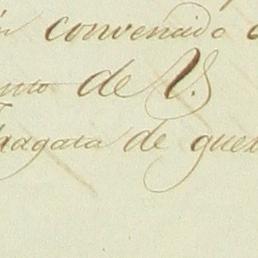 n convenido
nto de V.S
Fragata de guer